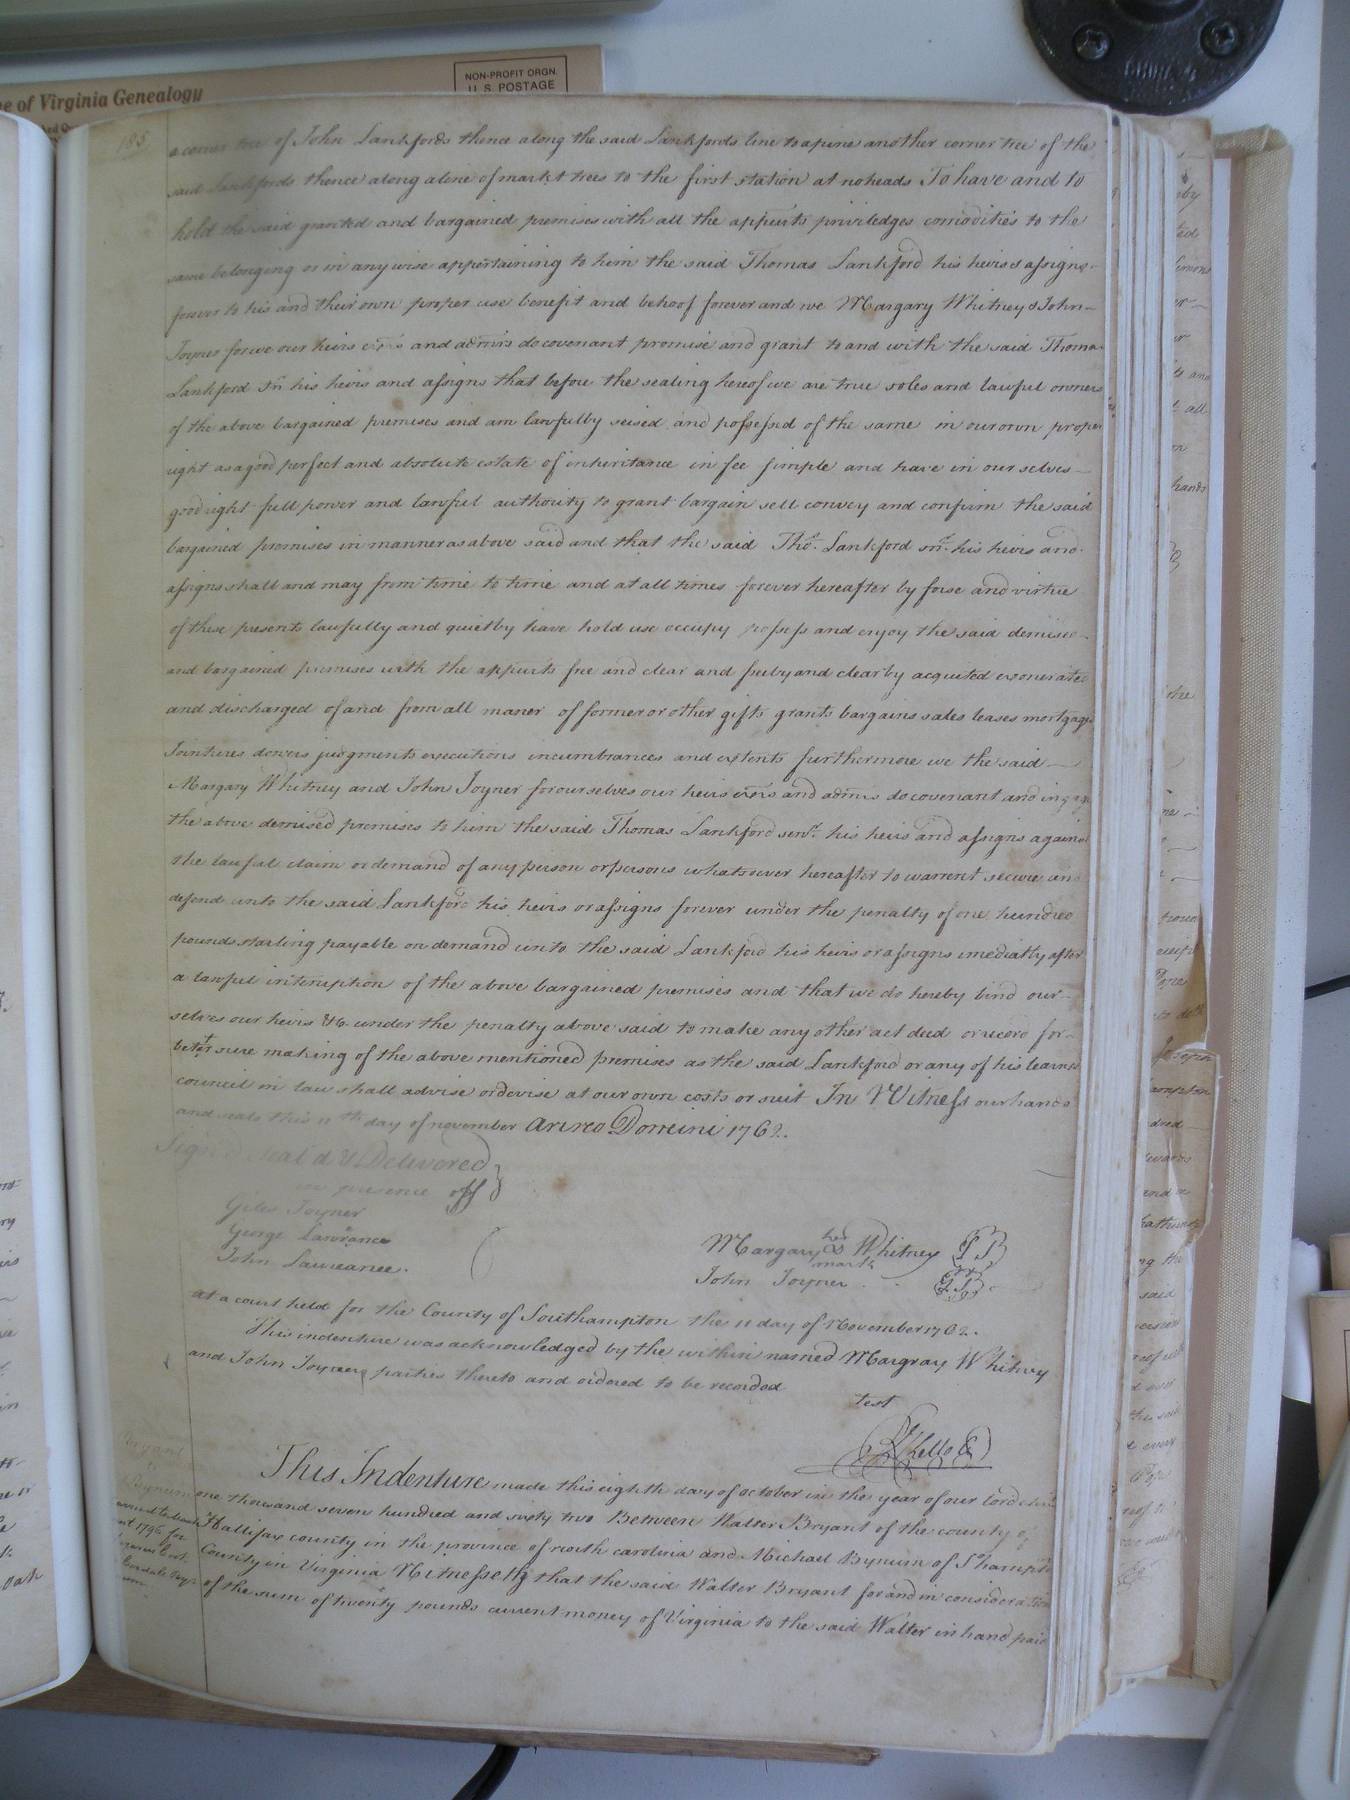 e of Virginia Genealogy
NON-PROFIT ORGN.
U.S. POSTAGE
185
a corner tree of John Lankfords thence along the said Lankfords line to a pine another corner tree of the
said Lankfords thence along a line of markt trees to the first station at noheads To have and to
hold the said granted and bargained premises with all the appurts priviledges comodities to the
same belonging or in any wise appertaining to him the said Thomas Lankford his heirs & assigns
forever to his and their own proper use benefit and behoof forever and we Margary Whitney & John
Joyner for we our heirs exrs and admrs do covenant promise and grant to and with the said Thomas
Lankford Sr his heirs and assigns that before the sealing hereof we are true soles and lawful owners
of the above bargained premises and am lawfully seised and possessed of the same in our own proper
right as a good perfect and absolute estate of inheritance in fee simple and have in our selves
good right full power and lawful authority to grant bargain sell convey and confirm the said
bargained premises in manner as above said and that the said Thos. Lankford snr. his heirs and
assigns shall and may from time to time and at all times forever hereafter by forse and virtue
of these presents lawfully and quietly have hold use occupy posess and enjoy the said demised
and bargained premises with the appurts free and clear and freely and clearly acquited exonerated
and discharged of and from all maner of former or other gifts grants bargains sales leases mortgages
Jointures dowers judgments executions incumbrances and extents furthermore we the said
Margary Whitney and John Joyner for ourselves our heirs exrs and admrs do covenant and ingage
the above demised premises to him the said Thomas Lankford senr. his heirs and assigns against
the lawful claim or demand of any person or persons whatsoever hereafter to warrent secure and
defend unto the said Lankford his heirs or assigns forever under the penalty of one hundred
pounds starling payable on demand unto the said Lankford his heirs or assigns imediatly after
a lawful interuption of the above bargained premises and that we do hereby bind our
selves our heirs &c. under the penalty above said to make any other act deed or record for
better sure making of the above mentioned premises as the said Lankford or any of his learned
council in law shall advise or devise at our own costs or suit In Witness our hands
and seals this 11th day of november Anno Domini 1762.
Sign'd Seal'd & Delivered
in presence off
Giles Joyner
George Lawrance
John Lawrance.
her
Margary Whitney
mark
John Joyner
at a court held for the County of Southampton the 11 day of November 1762.
This indenture was acknowledged by the within named Margray Whitney
and John Joyner parties thereto and ordered to be recorded
test
This Indenture made this eighth day of october in the year of our lord
one thousand seven hundred and sixty two Between Walter Bryant of the county of
Hallifax county in the province of north carolina and Michael Bynum of
County in Virginia Witnesseth that the said Walter Bryant for and in consideration
of the sum of twenty pounds current money of Virginia to the said Walter in hand paid